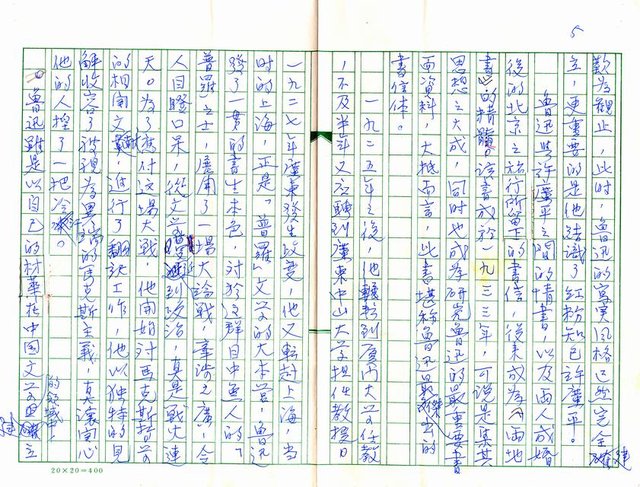 5
歎為觀止，此時，魯迅的寫实風格已然完全建
立，更重要的是他結識了紅粉知已許廣平。
魯迅與許廣平之間的情書，以及兩人成婚
後的北京之旅行所留下的書信，後來成為「兩地
書」的精髓。該書成於一九三三年，可說是集其
思想之大成，同時也成為研究魯迅的最重要書
面資料，大抵而言，此書堪称魯迅最傑出的
書信体。
一九二五年之後，他輾轉到厦門大学任教
，不及半年又应聘到廣東中山大学担任教授。
一九二七年廣東發生政變，他又転赴上海，当
时的上海，正是「普羅」文学的大本营，魯迅
發了一貫的書生本色，对於这群目中無人的「
普羅之士」，展開了一場大論戰，牽涉之廣，令
人目瞪口呆，從文学到政治，真是戰火連
天。为了應付这場大戰，他開始对馬克斯哲学
的相関文献進行了翻訳工作，他以独特的見
解收容了被視為異端的馬克斯主義，真讓関心
他的人捏了一把冷汗。
魯迅雖是以自己的材華在中国文学的領域中，建立
20×20=400